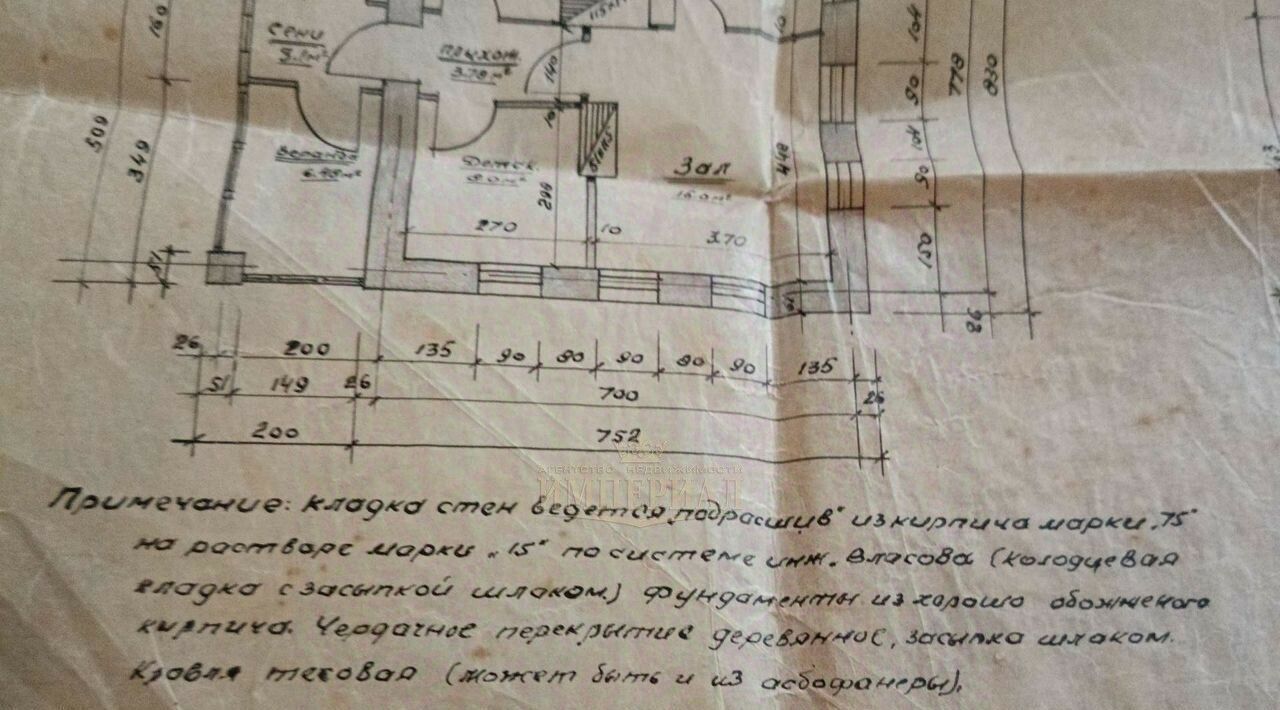 160
Сени
140
104
778
830
90
509
349
3.78м²
10
Веранда
6.48м²
Детск.
9.0м²
288
Зал
16.0м²
448
104
90
150
270
10
370
51
26
26 200 135 90 80 90 80 90 135
51 149 26 700 26
200 752
АГЕНТСТВО НЕДВИЖИМОСТИ
ИМПЕРИАЛ
Примечание: кладка стен ведется „подрасшив" из кирпича марки „75"
на растворе марки „15" по системе инж. Власова (колодцевая
кладка с засыпкой шлаком) Фундаменты из хорошо обожженого
кирпича. Чердачное перекрытие деревянное, засыпка шлаком.
Кровля тесовая (может быть и из асбофанеры).